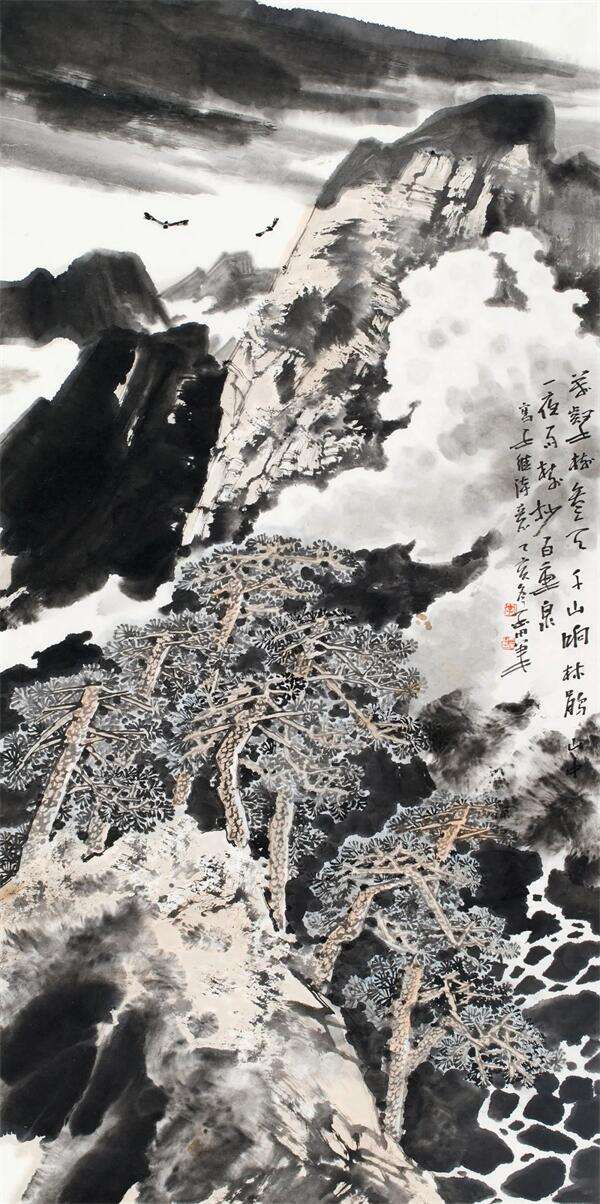 萬壑樹參天千山响杜鵑山中
一夜雨樹杪百重泉
寫王維詩意丁亥